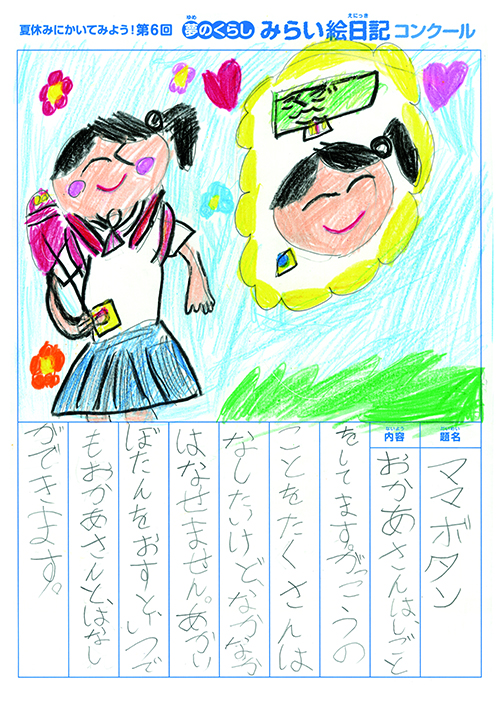 夏休みにかいてみよう!第6回 夢のくらし みらい絵日記 コンクール
ゆめ
えにっき
こくご
だいめい
題名
ママボタン
ないよう
内容
おかあさんは、しごと
をしてます。がっこうの
ことをたくさんは
なしたいけど、なかなか
はなせません。あかい
ぼたんをおすと、いつで
もおかあさんと、はなし
ができます。